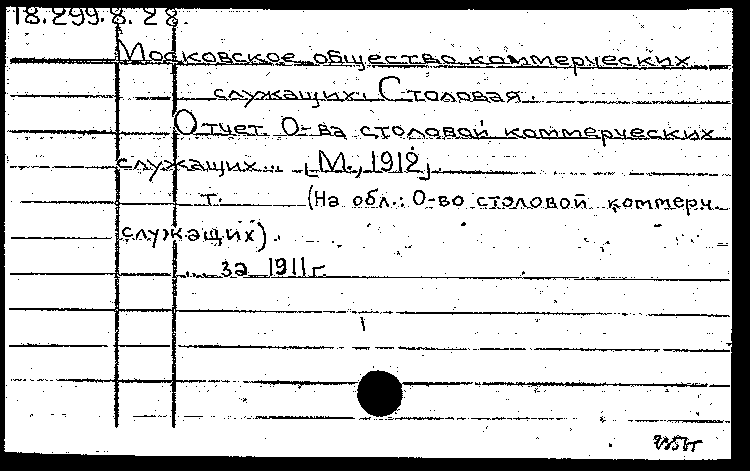 18.299.8.28.
Московское общество коммерческих
служащих. Столовая.
Отчет О-ва столовой коммерческих
служащих... [М., 1912].
т. (На обл.: О-во столовой коммерч.
служащих).
... за 1911 г.